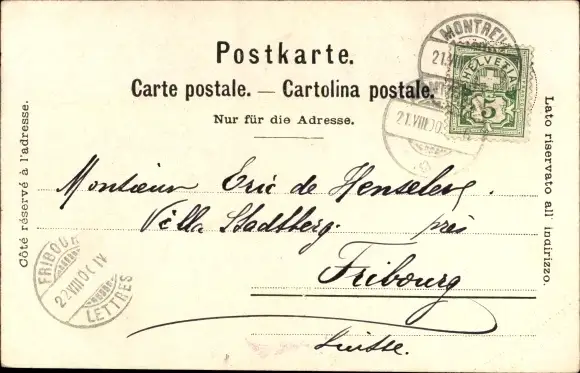 Postkarte.
Carte postale. — Cartolina postale.
Nur für die Adresse.
Côté réservé à l'adresse.
Lato riservato all' indirizzo.
HELVETIA
5
21.VIII.00
Monsieur Eric de Henseler.
Villa Stadtberg. près
Fribourg
Suisse.
FRIBOURG
22.VIII.00 IV
LETTRES